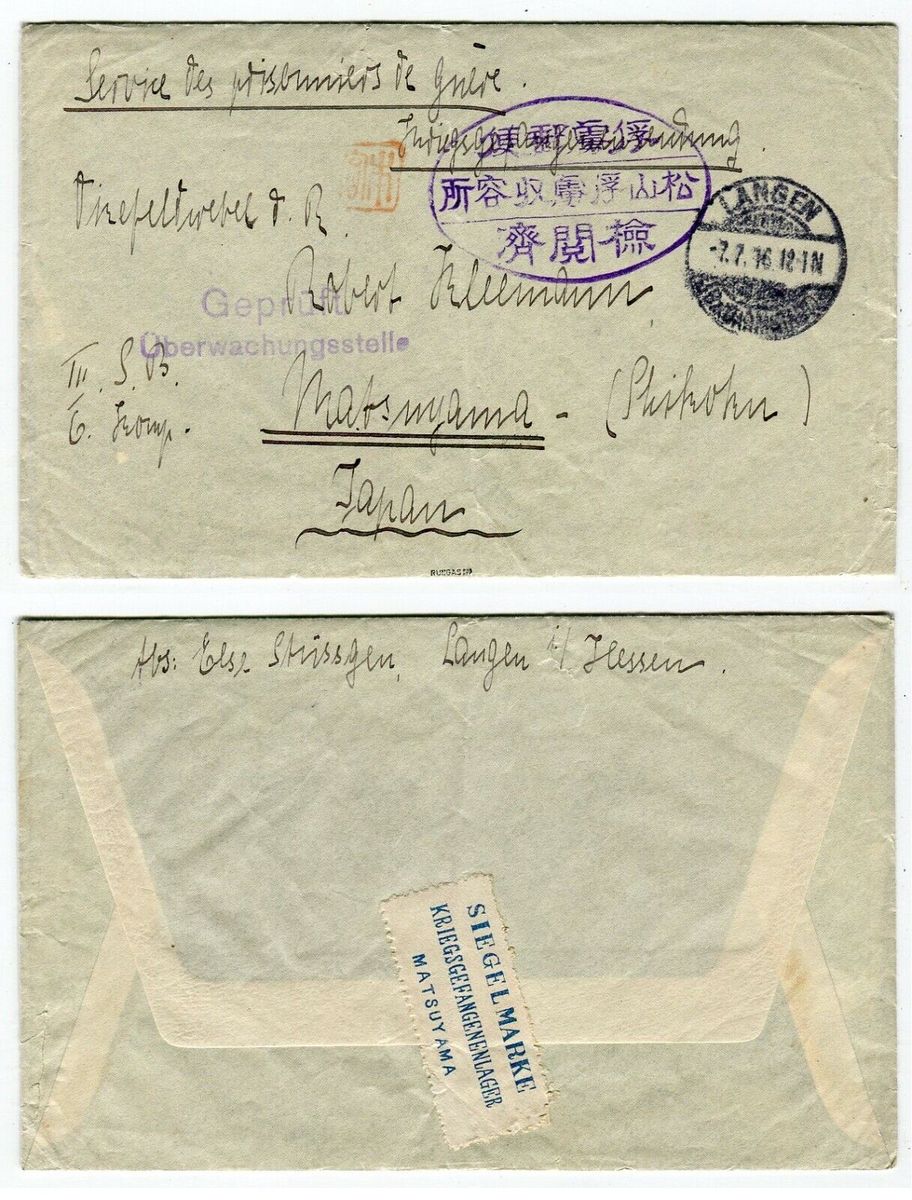 Service des prisonniers de Guère.
Kriegsgefangenensendung.
俘虜郵便
松山俘虜収容所
檢閲濟
LANGEN
-7.7.16.12-1N
Vizefeldwebel d. R.
Robert Kleemann
Geprüft
Überwachungsstelle
III. S. B.
6. Komp.
Matsuyama - (Shikoku)
Japan
Abs: Else Stüssgen, Langen i/Hessen.
SIEGELMARKE
KRIEGSGEFANGENENLAGER
MATSUYAMA